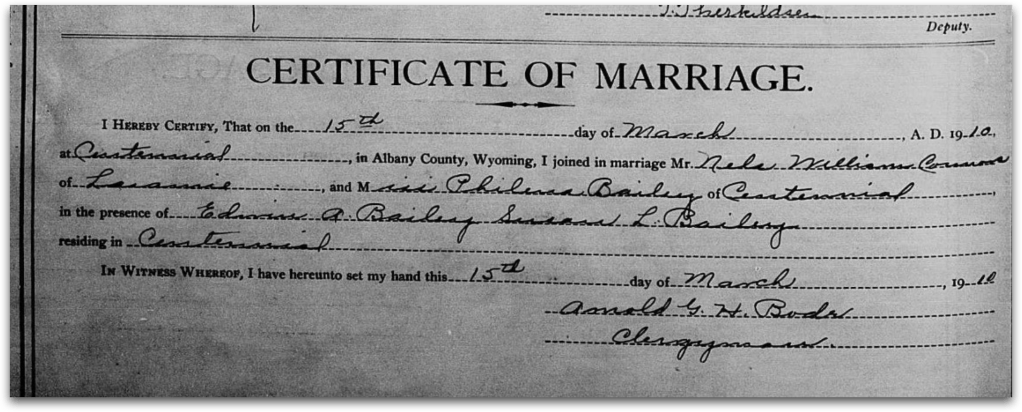 T. Therkildsen
Deputy.
CERTIFICATE OF MARRIAGE.
I HEREBY CERTIFY, That on the 15th day of March, A. D. 1910,
at Centennial, in Albany County, Wyoming, I joined in marriage Mr. Nels William
of Laramie, and Miss Philena Bailey of Centennial,
in the presence of Edwin A. Bailey Susan L. Bailey
residing in Centennial
IN WITNESS WHEREOF, I have hereunto set my hand this 15th day of March, 1910
Arnold G. H. Bode
Clergyman.